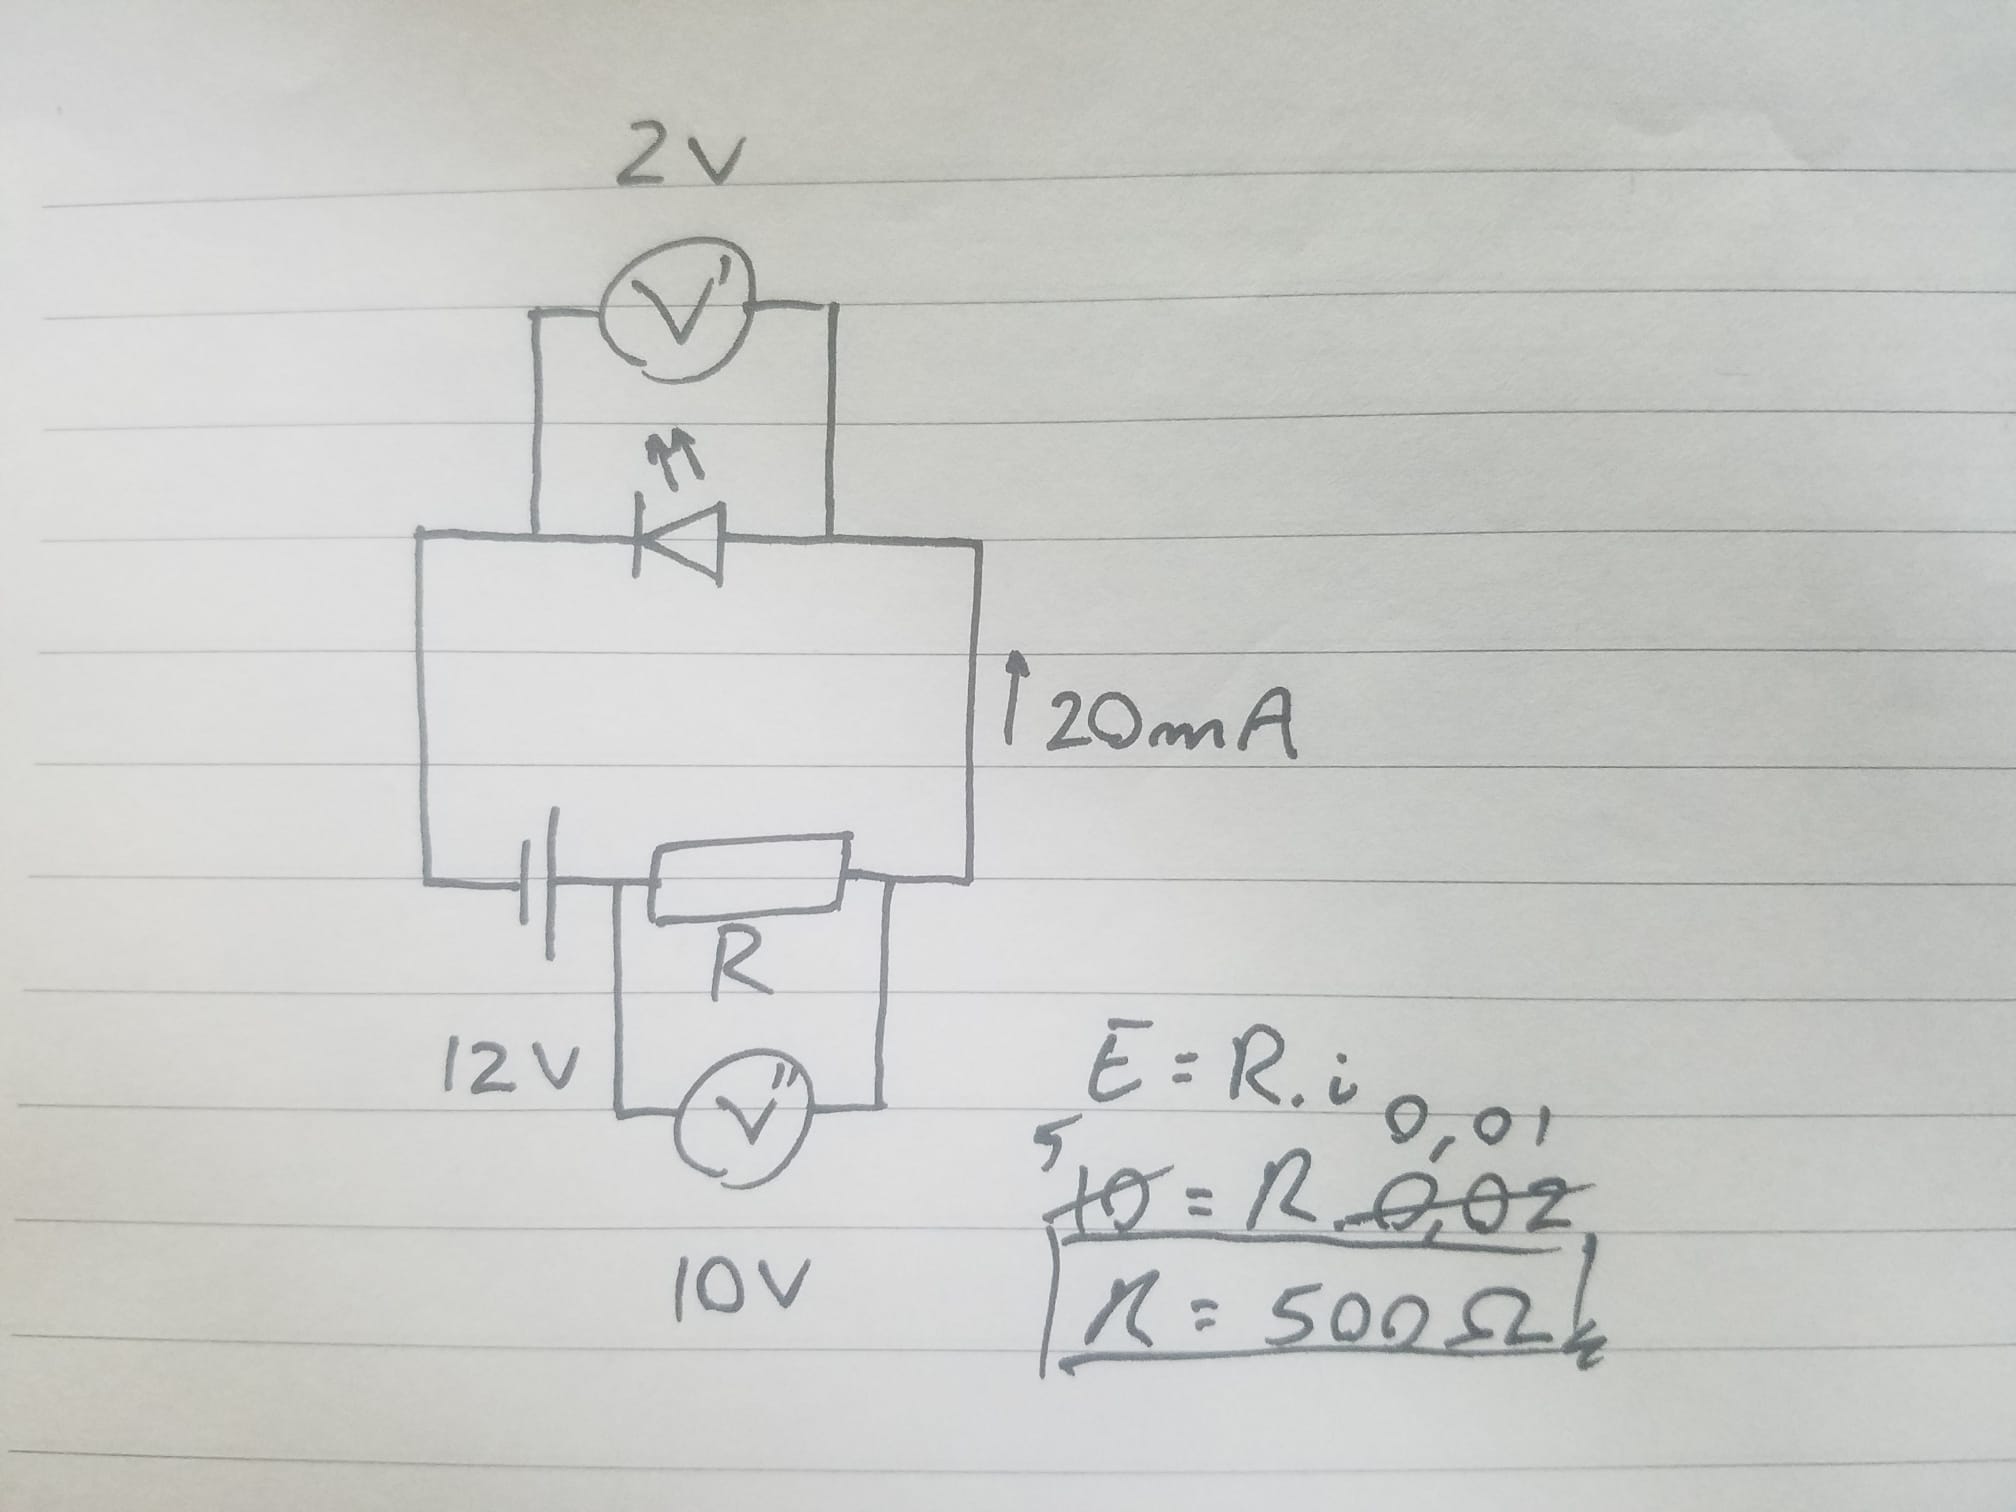 2V
V'
20mA
R
12V
V"
10V
E = R.i
5 0,01
10 = R.0,02
R = 500Ω